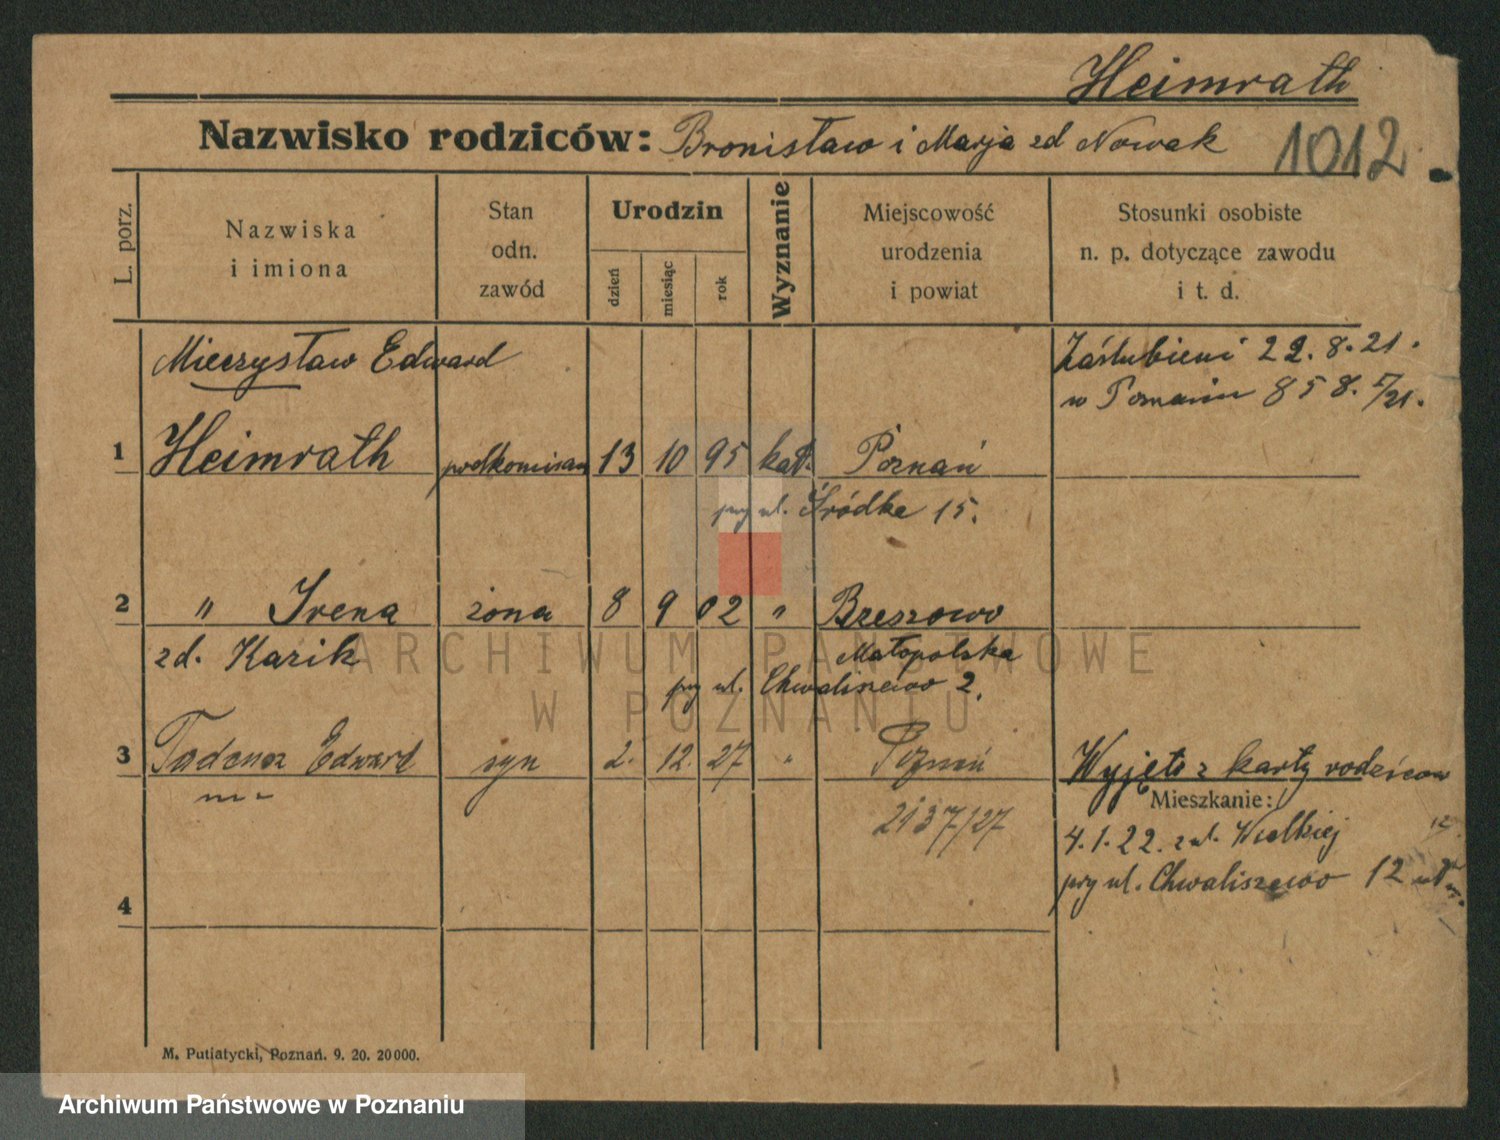 Heimrath
Nazwisko rodziców: Bronisław i Marja zd Nowak
1012
L. porz.
Nazwiska
i imiona
Stan
odn.
zawód
Urodzin
dzień
miesiąc
rok
Wyznanie
Miejscowość
urodzenia
i powiat
Stosunki osobiste
n. p. dotyczące zawodu
i t. d.
Mieczysław Edward
Zaślubieni 22.8.21.
w Poznaniu 858./21.
1 Heimrath podkomisarz 13 10 95 kat. Poznań
przy ul. Śródka 15.
2 " Irena żona 8 9 02 " Brzezowo
zd. Kazik
Małopolska
przy ul. Chwaliszewo 2.
3 Tadeusz Edward syn 2. 12. 27 " Poznań
Wyjęto z karty rodziców
Mieszkanie:
2137/27
4.1.22. z ul. Wielkiej
przy ul. Chwaliszewo 12
4
M. Putiatycki, Poznań. 9. 20. 20000.
ARCHIWUM PAŃSTWOWE
W POZNANIU
Archiwum Państwowe w Poznaniu